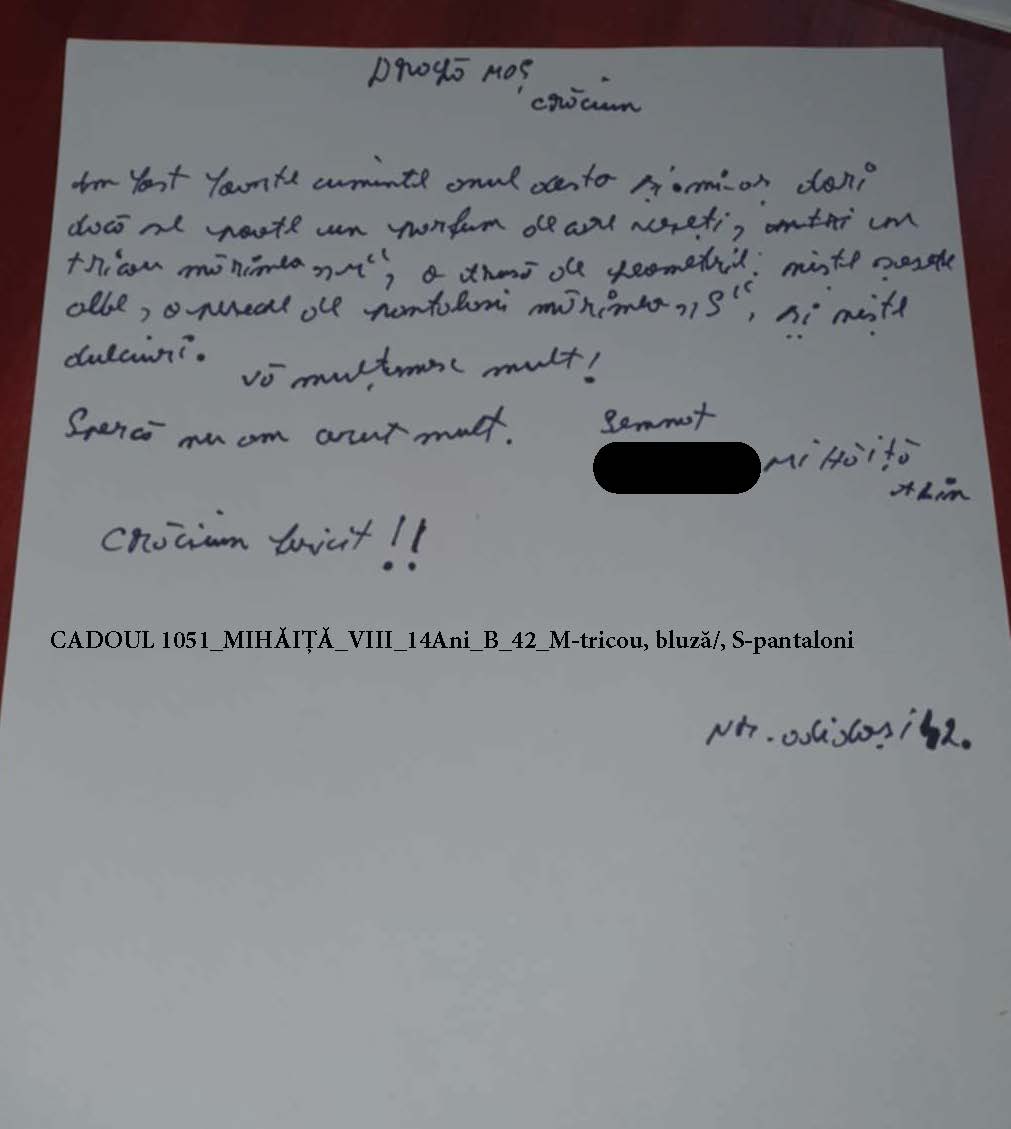 Dragă Moș
Crăciun
Am fost foarte cuminte anul acesta și mi-aș dori
dacă se poate un parfum de care aveți, un
tricou mărimea „M", o trusă de geometrie: niște șosete
albe, o pereche de pantaloni mărimea „S", și niște
dulciuri.
Vă mulțumesc mult!
Speră că nu am cerut mult.
Semnat
MiHăiță
Alin
Crăciun fericit!!
CADOUL 1051_MIHĂIȚĂ_VIII_14Ani_B_42_M-tricou, bluză/, S-pantaloni
Nr. adidași 42.